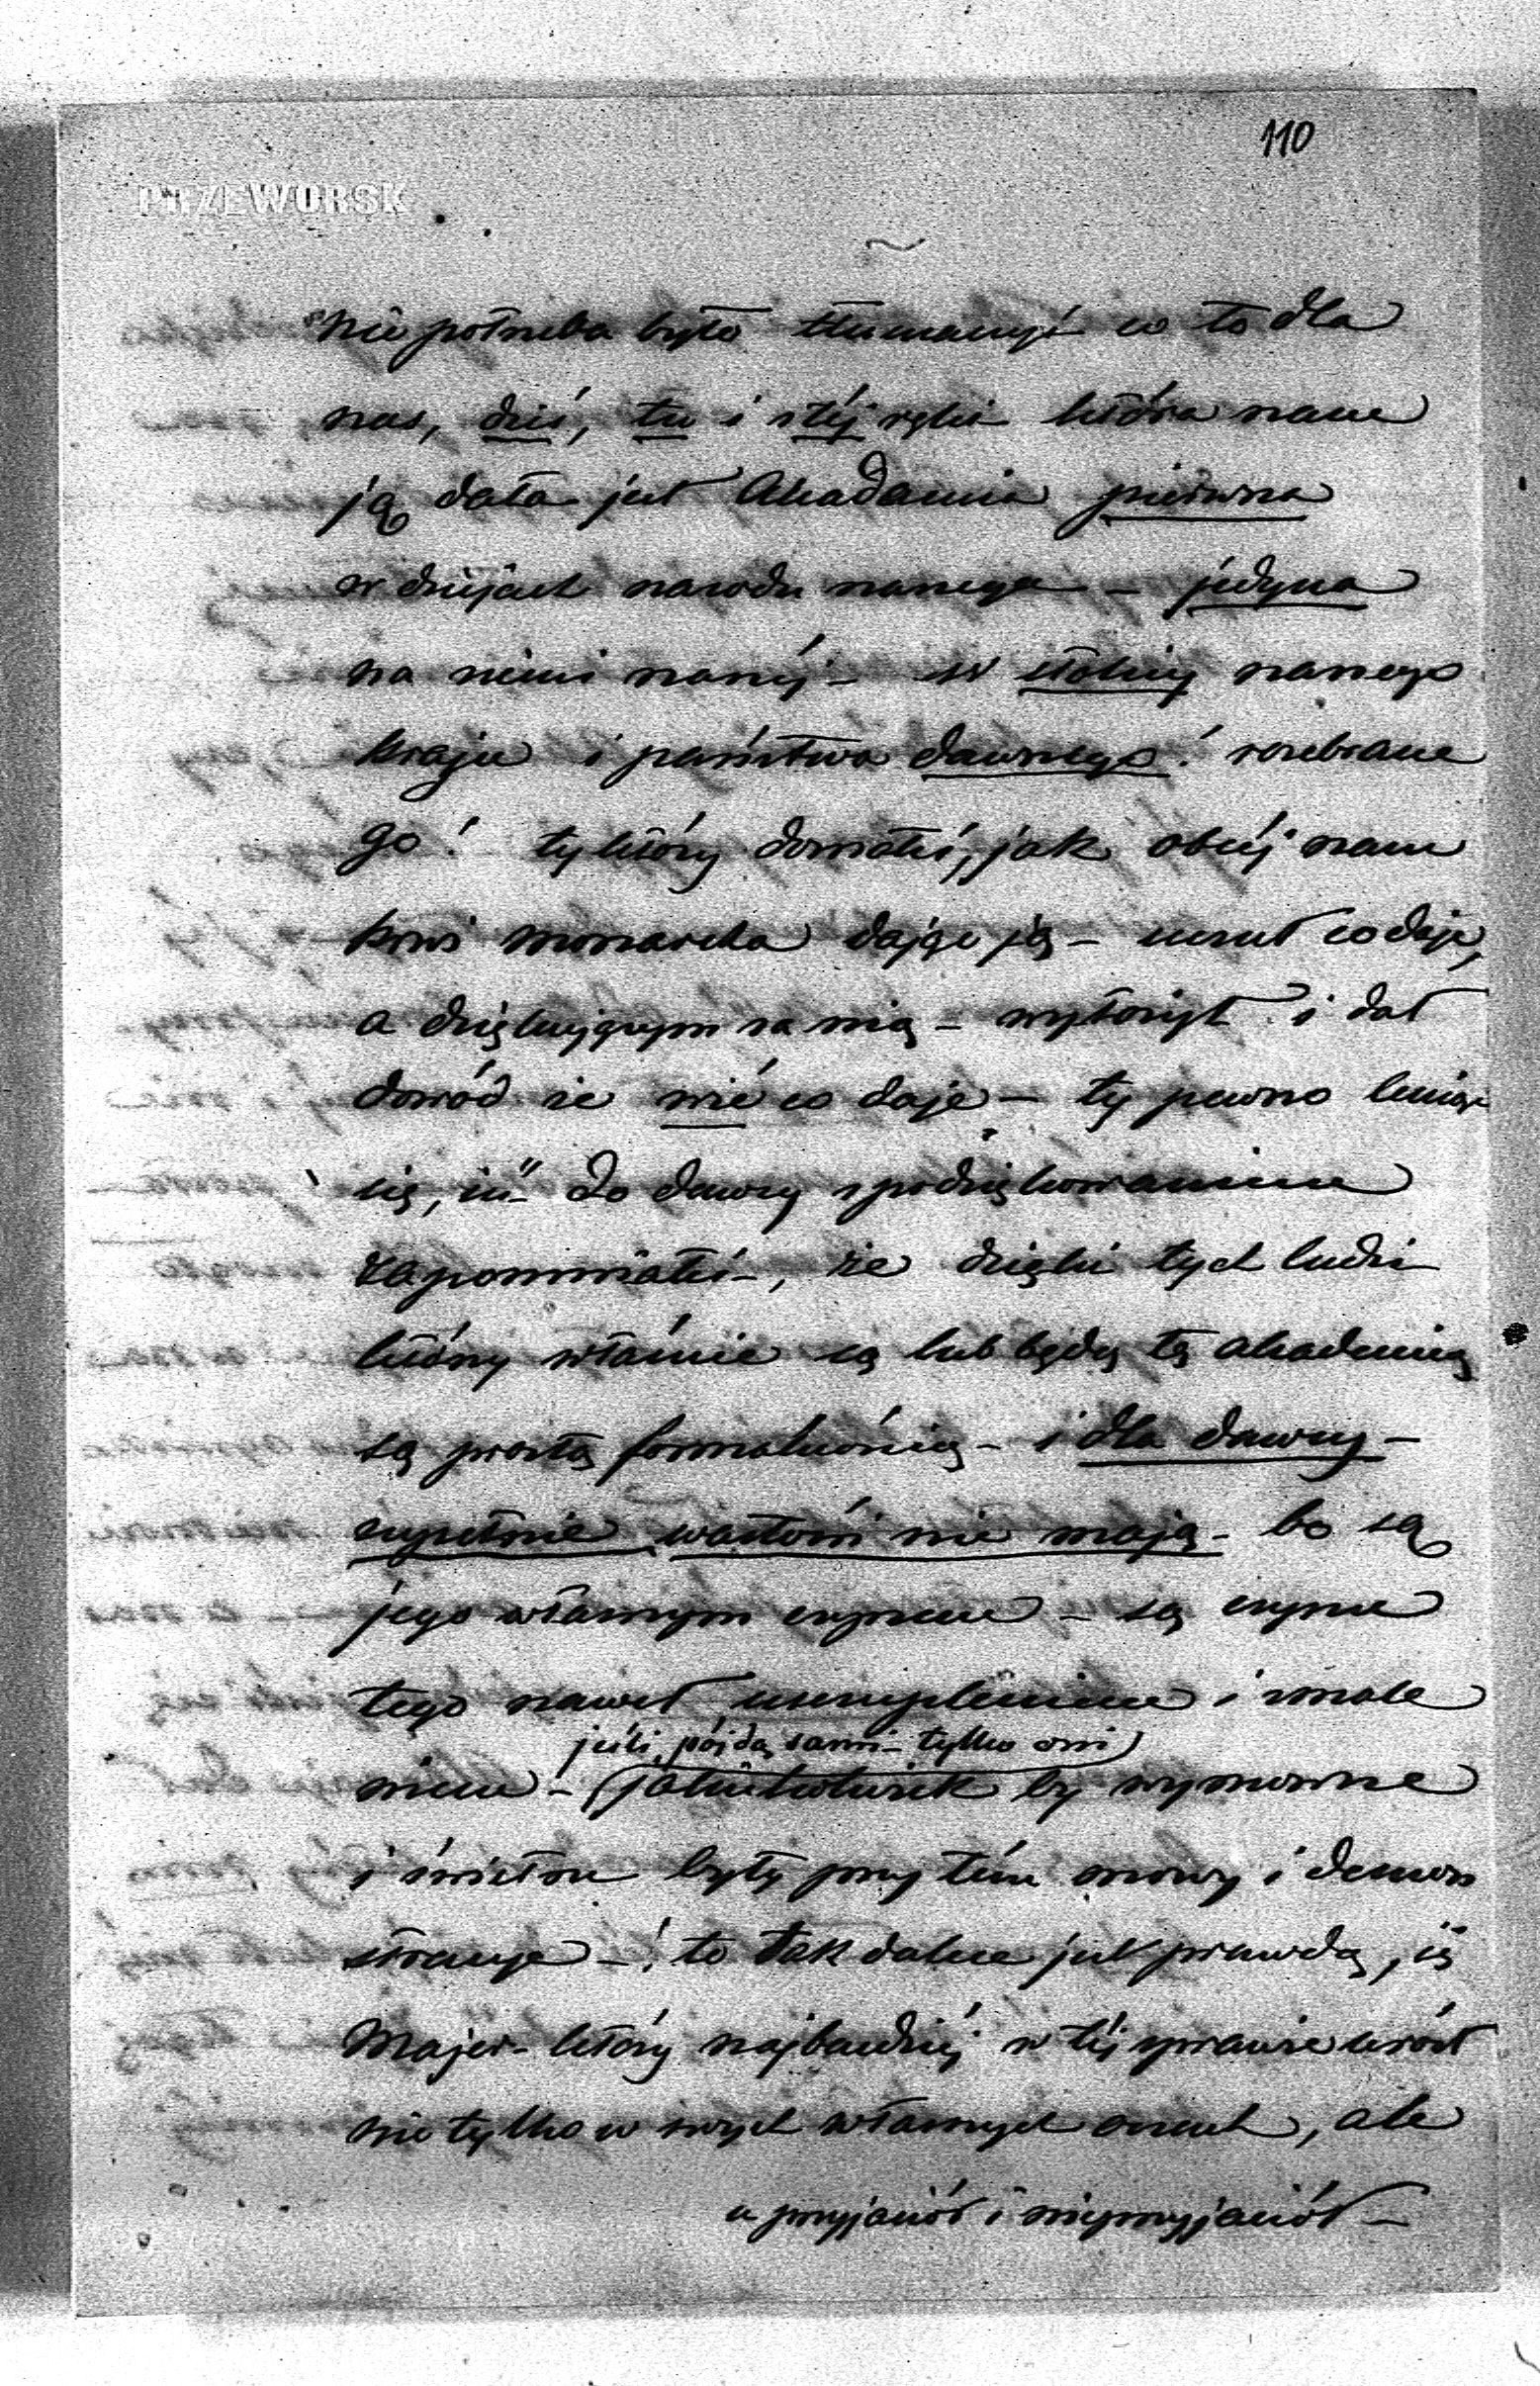 110
PRZEWORSK
nie potrzeba było tłumaczyć co to dla
nas, dziś, tu i z téj ręki która nam
ją dała jest Akademia pierwsza
w dziejach narodu naszego – jedyna
na ziemi naszéj – w stolicy naszego
kraju i państwa dawnego! rozebrane
go! ty który doznałeś, jak obcéj nam
krwi monarcha dając ją – uczuł co daje,
a dziękującym za nią – wyłożył i dał
dowód że wié co daje – ty pewno
się, iż do dawcy z podziękowaniem
zapomniałeś –, że dzięki tych ludzi
którzy właśnie są lub będą tą akademią
są prostą formalnością – i dla dawcy –
zupełnie wartości nie mają – bo są
jego własnym czynem – są czynu
tego nawet uszczupleniem i zmale
niem – (jeśli pójdą sami – tylko oni)
jakiekolwiek by wymowne
i świetne były przy tém mowy i demon
stracye –! to tak dalece jest prawdą, iż
Majer – który najbardziéj w téj sprawie urósł
nie tylko w swych własnych oczach, ale
u przyjaciół i nieprzyjaciół –